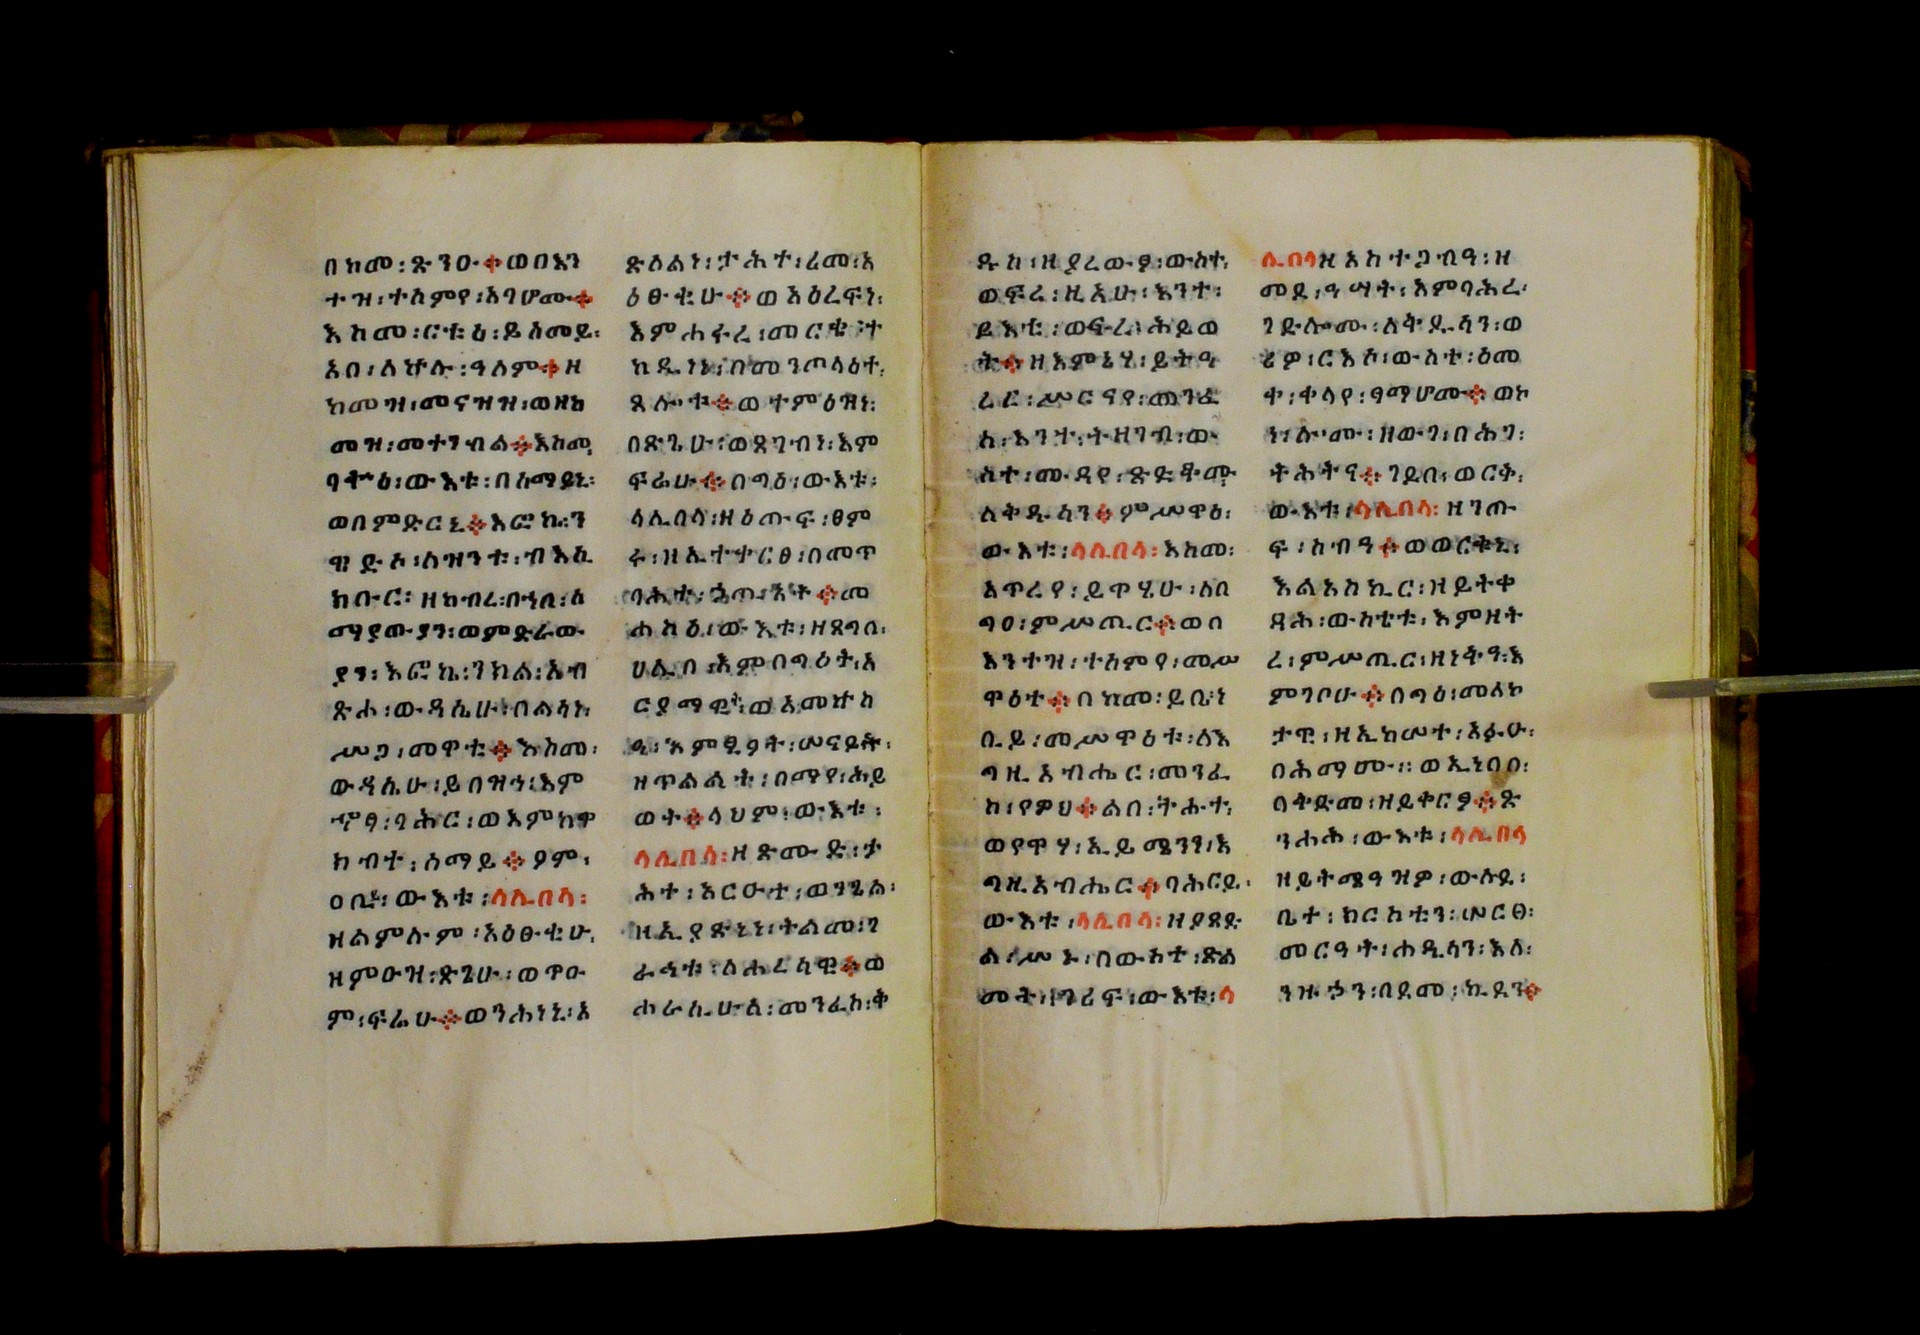 በከመ፡ጽንዑ።ወበእን
ተዝ፡ተስምየ፡እጓሆሙ።
እስመ፡ርቱዕ፡ይሰመይ፡
አበ፡ለኵሉ፡ዓለም።ዘ
ከመዝ፡መናዝዝ፡ወዘከ
መዝ፡መተንብል።እስመ
ባሕቱ፡ውእቱ፡በሰማይኒ፡
ወበምድርኒ።እፎኬ፡ን
ዌድሶ፡ለዝንቱ፡ብእሲ
ክቡር፡ዘከብረ፡በኀበ፡ሰ
ማያውያን፡ወምድራው
ያን፡እፎኬ፡ንክል፡አብ
ጽሐ፡ውዳሴሁ፡በልሳነ
ሥጋ፡መዋቲ።እስመ፡
ውዳሴሁ፡ይበዝኅ፡እም
ኆፃ፡ባሕር፡ወእምከዋ
ክብት፡ሰማይ።ያም፡
ዐቢይ፡ውእቱ፡ላሊበላ፡
ዘልምሉም፡አዕፁቂሁ፡
ዘምዑዝ፡ጽጌሁ፡ወጥዑ
ም፡ፍሬሁ።ወንሕነኒ፡አ
ጽዕልነ፡ታሕተ፡ረመ፡አ
ዕፁቂሁ።ወአዕረፍነ፡
እምሐሩረ፡መርቄ፡ተ
ከዲነነ፡በመንጦላዕተ፡
ጸሎቱ።ወተምዕዝነ፡
በጽጌሁ፡ወጸገብነ፡እም
ፍሬሁ።በግዕ፡ውእቱ፡
ላሊበላ፡ዘዕጡፍ፡ፀም
ሩ፡ዘኢተቀርፀ፡በመጥ
ባሕተ፡ኃጢአት።መ
ሐስዕ፡ውእቱ፡ዘጸግበ፡
ሀሊበ፡እምበግዕት፡አ
ርያማዊት፡ወአመክከ
ዒ፡እምዒዓት፡ሠናይት፡
ዘጥልልት፡በማየ፡ሕይ
ወት።ላህም፡ውእቱ፡
ላሊበላ፡ዘጽሙድ፡ታ
ሕተ፡አርዑተ፡ወንጌል፡
ዘኢያጽነነ፡ትልመ፡ገ
ራህቱ፡ለሐረሳዊ።ወ
ሐራሲሁሰ፡መንፈስ፡ቅ
ዱስ፡ዘያረውፆ፡ውስተ፡
ወፍረ፡ዚአሁ፡እንተ፡
ይእቲ፡ወፍረ፡ሕይወ
ት።ዘእምኔሃ፡ይትዓ
ረር፡ሥርናየ፡መንፈ
ስ፡እንተ፡ትዘገብ፡ው
ስተ፡ሙዳየ፡ጽድቆሙ
ለቅዱሳን።ምሥዋዕ፡
ውእቱ፡ላሊበላ፡እስመ፡
አጥረየ፡ይዋሄሁ፡ለበ
ግዐ፡ምሥጢር።ወበ
እንተዝ፡ተሰምየ፡መሥ
ዋዕተ።በከመ፡ይቤ፡ነ
ቢይ፡መሥዋዕቱ፡ለእ
ግዚአብሔር፡መንፈ
ስ፡የዋህ።ልበ፡ትሑተ፡
ወየዋሃ፡ኢይሜንን፡እ
ግዚአብሔር።ባሕርይ፡
ውእቱ፡ላሊበላ፡ዘያጸድ
ል፡ሥኑ፡በውስተ፡ጽል
መት፡ነፊፍ፡ውእቱ፡ላ
ሊበላዘአስተጋብዓ፡ዘ
መደ፡ዓሣት፡እምባሕረ፡
ገድሎሙ፡ለቅዱሳን፡ወ
ረዎ፡ርእሶ፡ውስተ፡ዕመ
ቀ፡ቀላየ፡ዓማሆሙ።ወኮ
ነ፡ሎሙ፡ዘውገ፡በሕገ፡
ትሕትና።ገይበ፡ወርቅ፡
ውእቱ፡ላሊበላ፡ዘንጡ
ፍ፡ስብዓ።ወወርቅኒ፡
አልአስኪር፡ዘይትቀ
ዳሕ፡ውስቴቱ፡እምዘት
ረ፡ምሥጢር፡ዘነቅዓ፡እ
ምገቦሁ።በግዕ፡መለኮ
ታዊ፡ዘኢከሠተ፡አፉሁ፡
በሕማሙ።ወኢነበበ፡
በቅድመ፡ዘይቀርፆ።ጽ
ንሐሕ፡ውእቱ፡ላሊበላ
ዘይትሜዓዝዎ፡ውሉደ፡
ቤተ፡ክርስቲን፡ሠርፀ፡
መርዓት፡ሐዲሳን፡እለ፡
ንዙኃን፡በደመ፡ኪዳን።